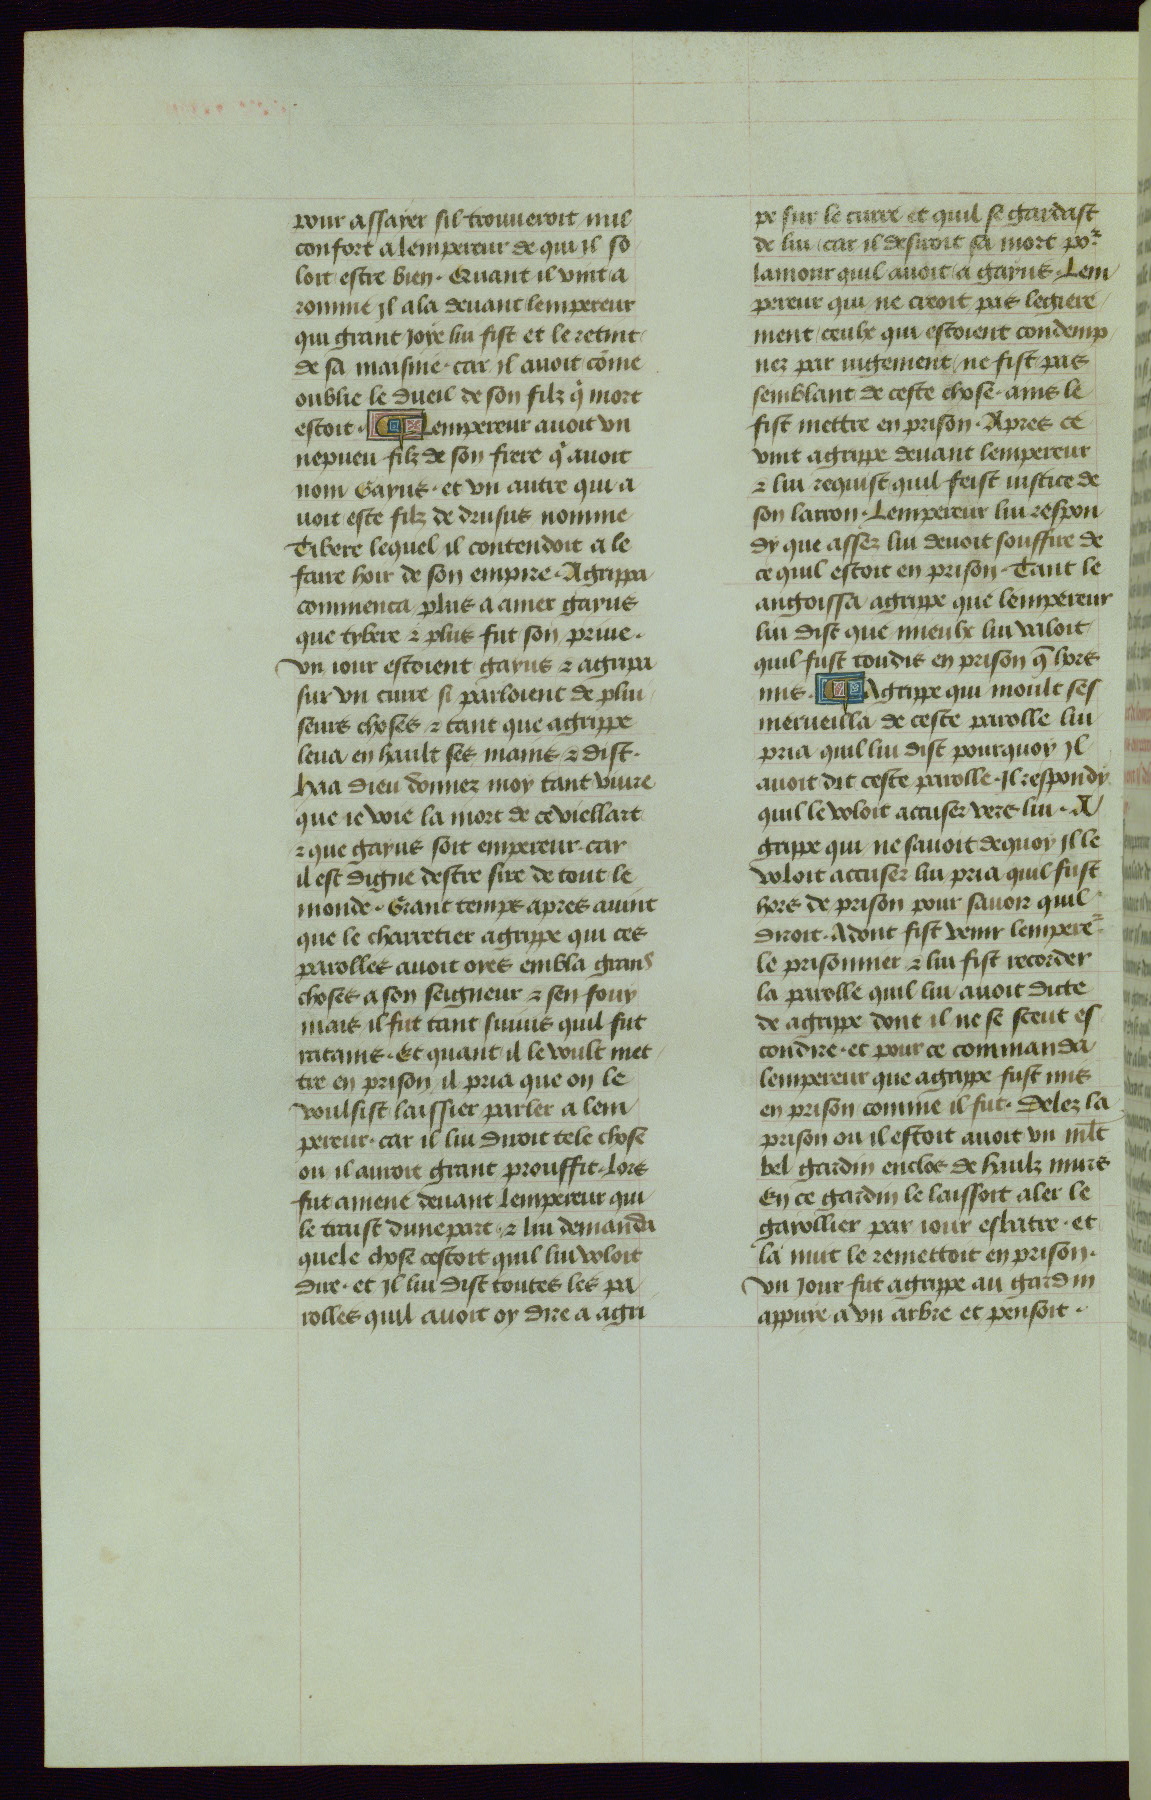 pour assayer sil trouueroit nul
confort a lempereur de qui il so
loit estre bien. Quant il vint a
romme Il ala deuant lempereur
qui grant Ioye lui fist et le retint
de sa maisnie. car il auoit cõme
oublie le dueil de son filz q̓ mort
estoit. Lempereur auoit vn
nepueu filz de son frere q̓ auoit
nom Gayus. et vn autre qui a
uoit este filz de drusus nomme
Tibere lequel il contendoit a le
faire hoir de son empire. Agrippa
commenca plus a amer gayus
que tybere ⁊ plus fut son priue.
vn iour estoient gayus ⁊ agripa
sur vn curre si parloient de plui
seurs choses ⁊ tant que agrippe
leua en hault ses mains ⁊ dist.
haa dieu donnez moy tant viure
que ie voie la mort de ce viellart
⁊ que gayus soit empereur. car
il est digne destre sire de tout le
monde. Grant temps apres auint
que le charretier agrippe qui ces
parolles auoit oyes embla grans
choses a son seigneur ⁊ sen fouy
mais il fut tant suiuis quil fut
ratains. Et quant il le voult met
tre en prison il pria que on le
voulsist laissier parler a lem
pereur. car il lui diroit tele chose
ou il auroit grant prouffit. Lors
fut amene deuant lempereur qui
le traist dune part. ⁊ lui demanda
quele chose cestoit quil lui voloit
dire. et Il lui dist toutes les pa
rolles quil auoit oy dire a agri
pe sur le curre et quil se gardast
de lui car il desiroit sa mort po²
lamour quil auoit a gayus. Lem
pereur qui ne creoit pas legiere
ment ceulx qui estoient condemp
nez par iugement ne fist pas
semblant de ceste chose. ains le
fist mettre en prison. Apres ce
vint agrippe deuant lempereur
⁊ lui requist quil feist iustice de
son larron. Lempereur lui respon
dy que assez lui deuoit souffire de
ce quil estoit en prison. Tant le
angoissa agrippe que lempereur
lui dist que mieulx lui valoit
quil fust toudis en prison q̃ hors
mis. Agrippe qui moult ses
merueilla de ceste parolle lui
pria quil lui dist pourquoy Il
auoit dit ceste parolle. Il respondy
quil le voloit accuser vers lui. A
grippe qui ne sauoit de quoy Il le
voloit accuser lui pria quil fust
hors de prison pour sauoir quil
diroit. Adont fist venir lempere²
le prisonnier ⁊ lui fist recorder
la parolle quil lui auoit dicte
de agrippe dont il ne se sceut es
condire. et pour ce commanda
lempereur que agrippe fust mis
en prison comme il fut. Delez la
prison ou il estoit auoit vn ml̃t
bel gardin enclos de haulz murs
En ce gardin le laissoit aler le
garollier par iour esbatre. et
la nuit le remettoit en prison.
vn Iour fut agrippe au gardin
appuye a vn arbre et pensoit.